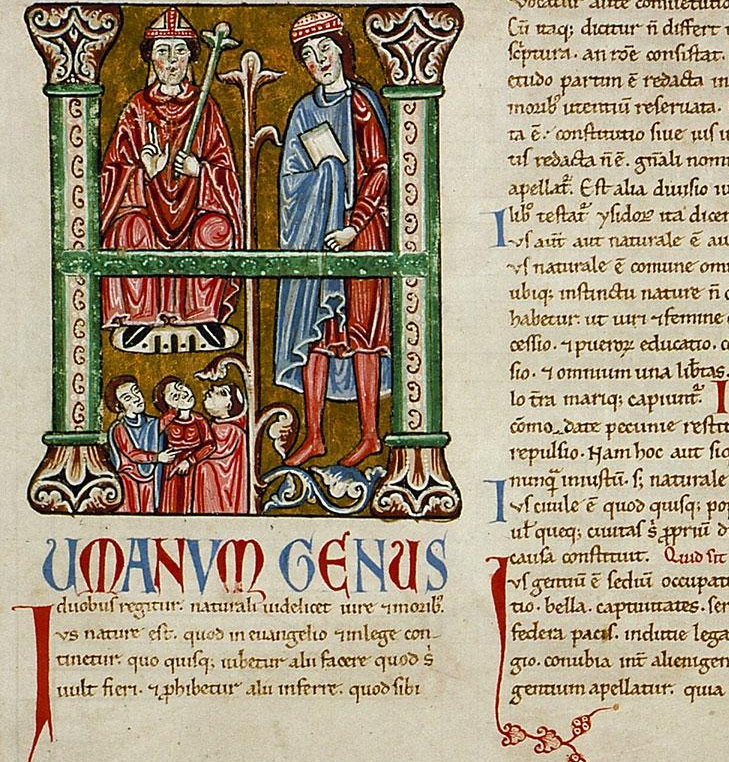 H
UMANVM GENUS
duobus regitur. naturali uidelicet iure ⁊ moribꝰ.
Ius nature est. quod in euangelio ⁊ in lege con-
tinetur. quo quisq; iubetur alii facere quod s̄
uult fieri. ⁊ ꝓhibetur alii inferre. quod sibi
uocatur
Cū itaq; dicitur n̄ differt
sc̄ptura. an rōe consistat.
etudo partim ē redacta in
moribꝰ utentiū reseruata.
ta ē. constitutio siue ius
tis redacta n̄ ē. gn̄ali nomi
apellat᷑. Est alia diuisio iu
libꝰ testat᷑ ysidorꝰ ita dicen
Ius aūt aut naturale ē au
Ius naturale ē comune omi
ubiq; instinctu nature n̄ c
habetur. ut uiri ⁊ femine
cessio. ⁊ pueroꝝ educatio. c
sio. ⁊ omnium una lib̄tas.
lo t̄ra mariq; capiunt᷑. I
cōmodate pecunie restit
repulsio. Nam hoc aut siq
nunq̄ iniustū. s; naturale
Ius ciuile ē quod quisq; po
ul̄ queq; ciuitas s̄ ꝓpriū d
causa constituit. Quid sit
Ius gentiū ē sediū occupat
tio. bella. captiuitates. ser
federa pacis. indutie lega
gio. conubia int̄ alienigen
gentium apellatur. quia